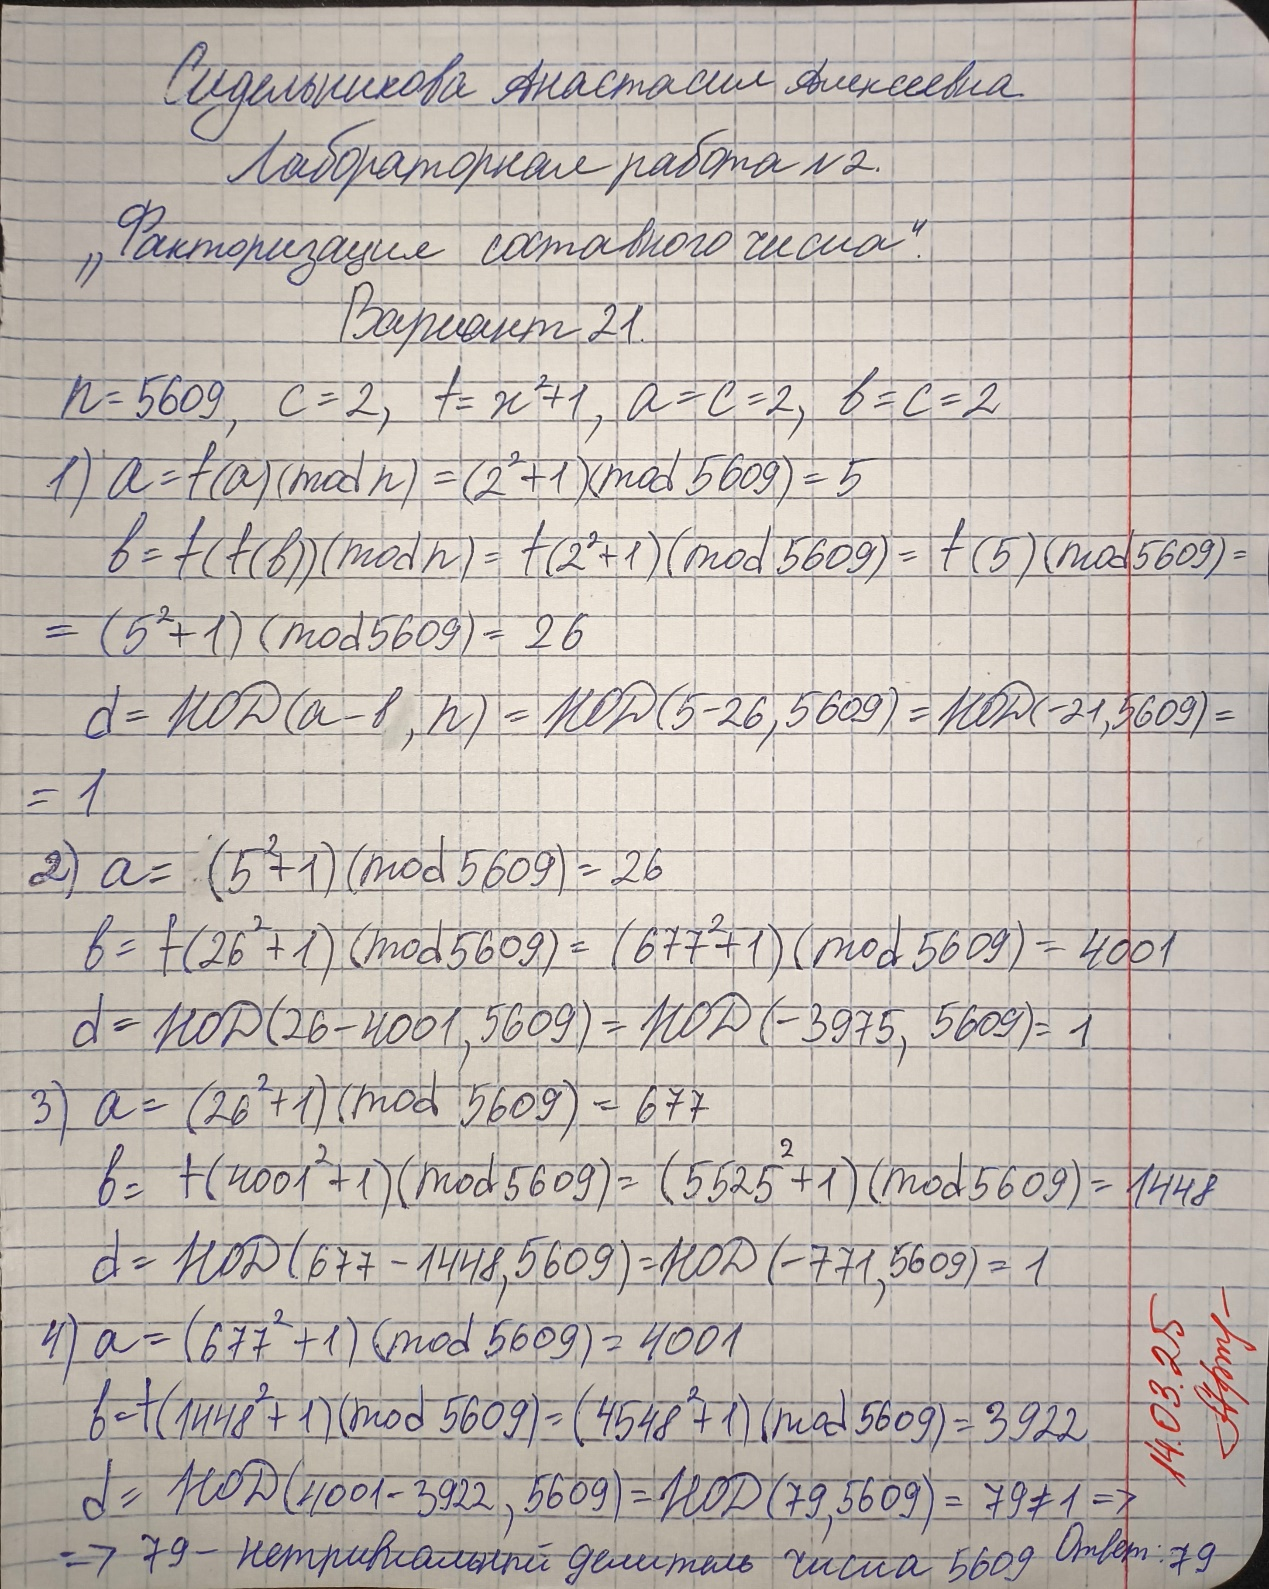 Сидельникова Анастасия Алексеевна
Лабораторная работа №2.
„Факторизация составного числа“.
Вариант 21.
n = 5609, c = 2, f = x²+1, a = c = 2, b = c = 2
1) a = f(a)(mod n) = (2²+1)(mod 5609) = 5
b = f(f(b))(mod n) = f(2²+1)(mod 5609) = f(5)(mod 5609) =
= (5²+1)(mod 5609) = 26
d = НОД(a-b, n) = НОД(5-26, 5609) = НОД(-21, 5609) =
= 1
2) a = (5²+1)(mod 5609) = 26
b = f(26²+1)(mod 5609) = (677²+1)(mod 5609) = 4001
d = НОД(26-4001, 5609) = НОД(-3975, 5609) = 1
3) a = (26²+1)(mod 5609) = 677
b = f(4001²+1)(mod 5609) = (5525²+1)(mod 5609) = 1448
d = НОД(677-1448, 5609) = НОД(-771, 5609) = 1
4) a = (677²+1)(mod 5609) = 4001
b = f(1448²+1)(mod 5609) = (4548²+1)(mod 5609) = 3922
d = НОД(4001-3922, 5609) = НОД(79, 5609) = 79 ≠ 1 =>
=> 79 - нетривиальный делитель числа 5609 Ответ: 79
14.03.25